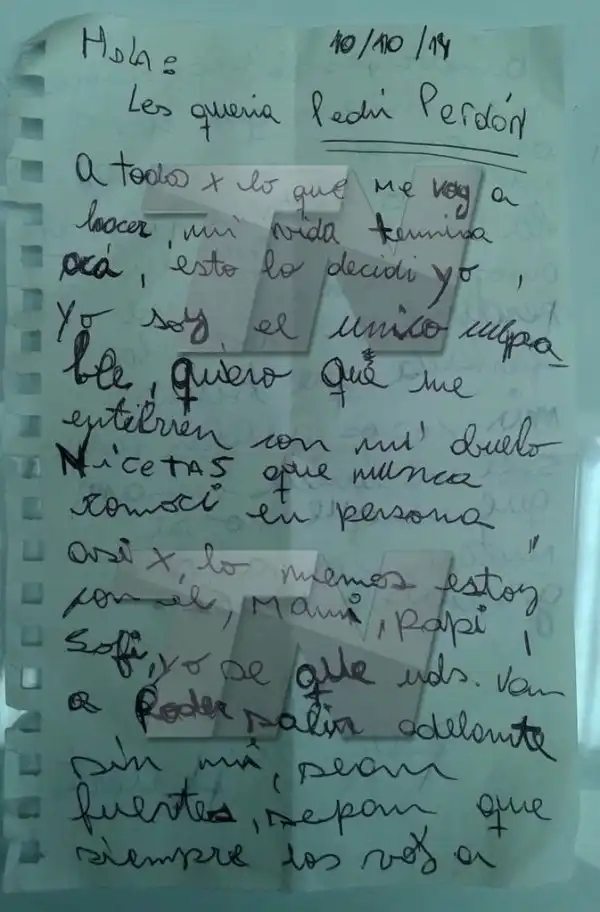 Hola: 10/10/14
Les queria Pedir Perdón
a todos x lo que me voy a
hacer, mi vida termina
acá, esto lo decidi yo,
yo soy el unico culpa-
ble, quiero que me
entierren con mi abuelo
NiCETAS que nunca
conoci en persona
asi x lo menos estoy
con el, Mami, Papi,
Sofi, yo se que uds. van
a Poder salir adelante
sin mi, sean
fuertes, sepan que
siempre los voy a
TN
TN